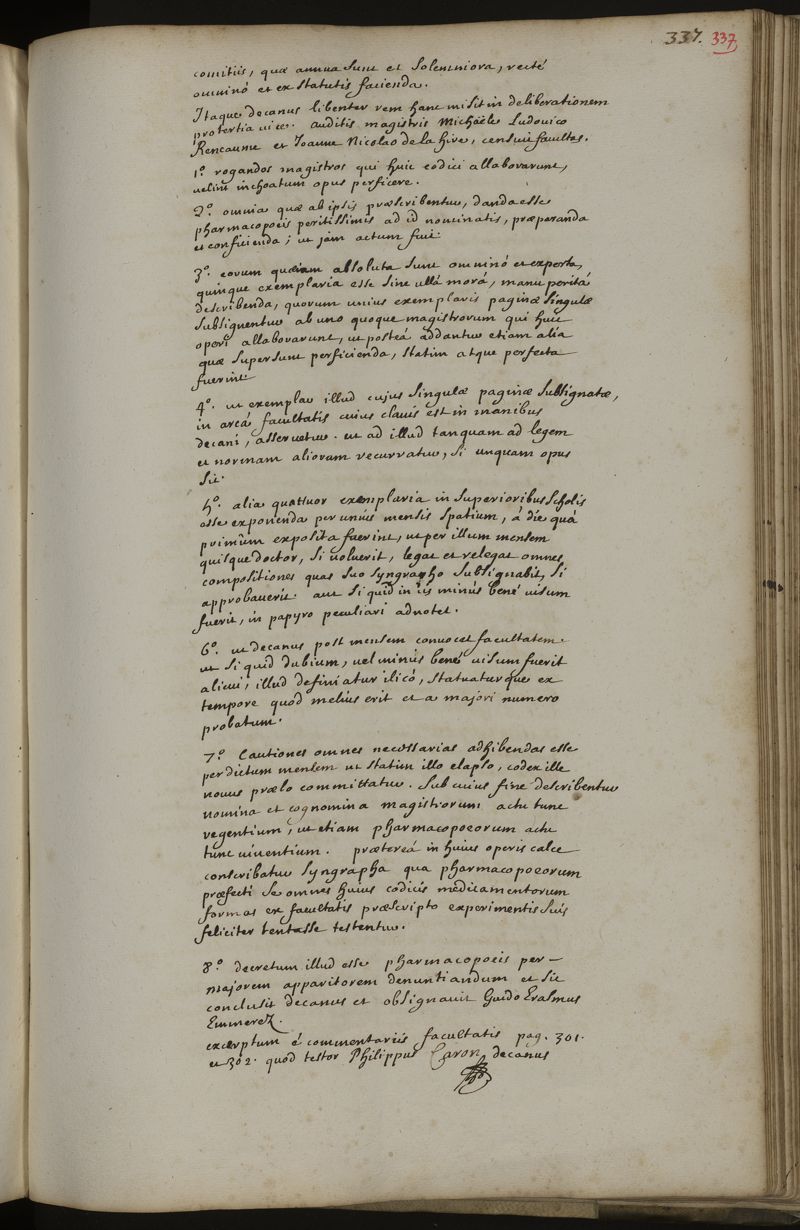 337. 337
comitiis, quæ annua sunt et solemniora, recté
omninó et ex statutis facienda.
Itaque decanus libenter rem hanc misit in deliberationem
pro tertia vice. auditis magistris Michaële Ludovico
Rencaume et Joanne Nicolao de la hire, censuit facultas.
1.° rogandos magistros qui huic codici allaborarunt,
velint inchoatum opus perficere.
2.° omnia quæ ab ipsis præscribentur, danda esse
pharmacopoeis peritissimis ad id nominatis, præparanda
et conficienda; ut jam actum fuit.
3.° eorum quæ jam absoluta sunt omninó et experta,
quinque exemplaria esse sine ullâ morâ, manu peritâ
describenda, quorum unius exemplaris paginæ singulæ
subsignentur ab uno quoque magistrorum qui huic
operi allaborarunt, ut posteá addantur etiam alia
quæ supersunt perficienda, statim atque perfecta
fuerint.
4.° ut exemplar illud cujus singulæ paginæ subsignatæ,
in arcâ facultatis cuius clavis est in manibus
decani, asservetur. ut ad illud tanquam ad legem
et normam aliorum recurratur, si unquam opus
sit.
5.° alia quattuor exemplaria in superioribus scholis
esse exponenda per unius mensis spatium, á die quâ
primùm exposita fuerint, ut per illum mensem
quisque doctor, si voluerit, legat et relegat omnes
compositiones quas suo syngrapho subsignabit, si
approbaverit. aut si quid in iis minùs bené visum
fuerit, in papyro peculiari adnotet.
6.° ut decanus post mensem convocet facultatem.
ut si quid dubium, vel minùs bené visum fuerit
alicui, illud definiatur ilicó, statuaturque ex
tempore quod melius erit et a majori numero
probatum.
7.° Cautiones omnes necessarias adhibendas esse
per dictum mensem ut statim illo elapso, codex ille
novus prælo committatur. sub cuius fine describentur
nomina et cognomina magistrorum actu tunc
regentium, ut etiam pharmacopoeorum actu
tunc viventium. prætereá in huius operis calce
conscribatur syngrapha qua pharmacopoeorum
præfecti se omnes huius codicis medicamentorum
formas ex facultatis præscripto experimentis suis
feliciter tentasse testentur.
8.° decretum illud esse pharmacopoeis per —
majorem apparitorem denuntiandum et sic
conclusit decanus et obsignavit Guido Erasmus
Emmerez.
excerptum é commentariis facultatis pag. 301.
et 302. quod testor Philippus Caron, decanus